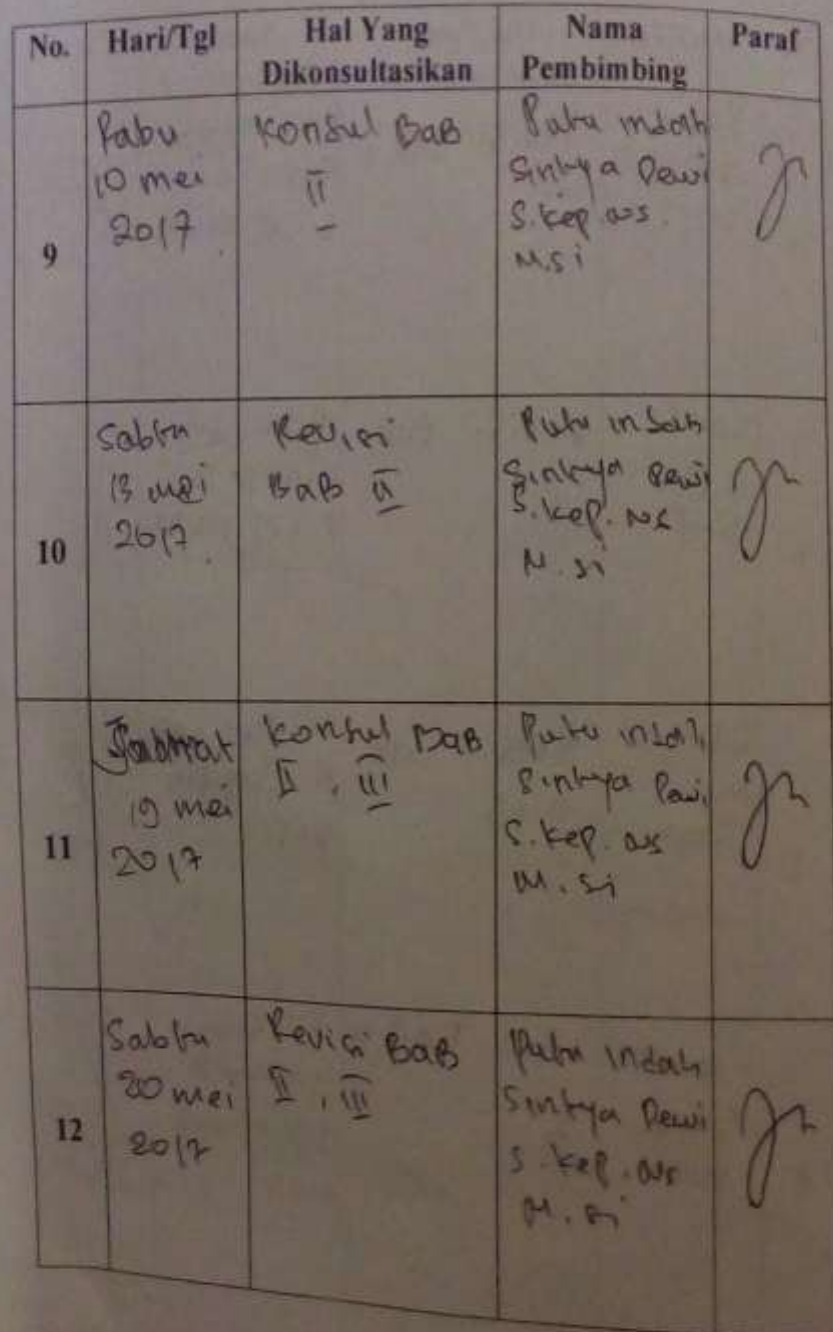 No. Hari/Tgl Hal Yang Dikonsultasikan Nama Pembimbing Paraf
9
Rabu
10 mei
2017
Konsul BaB
II
Putu indah
Sintya Dewi
S.kep Ns.
M.si
10
Sabtu
13 mei
2017
Revisi
BaB II
Putu indah
Sintya Dewi
S.kep. Ns
M.si
11
19 mei
2017
Konsul BaB
II, III
Putu indah
Sintya Dewi
S.kep. Ns
M.si
12
Sabtu
20 mei
2017
Revisi BaB
II, III
Putu indah
Sintya Dewi
S.kep. Ns
M.si